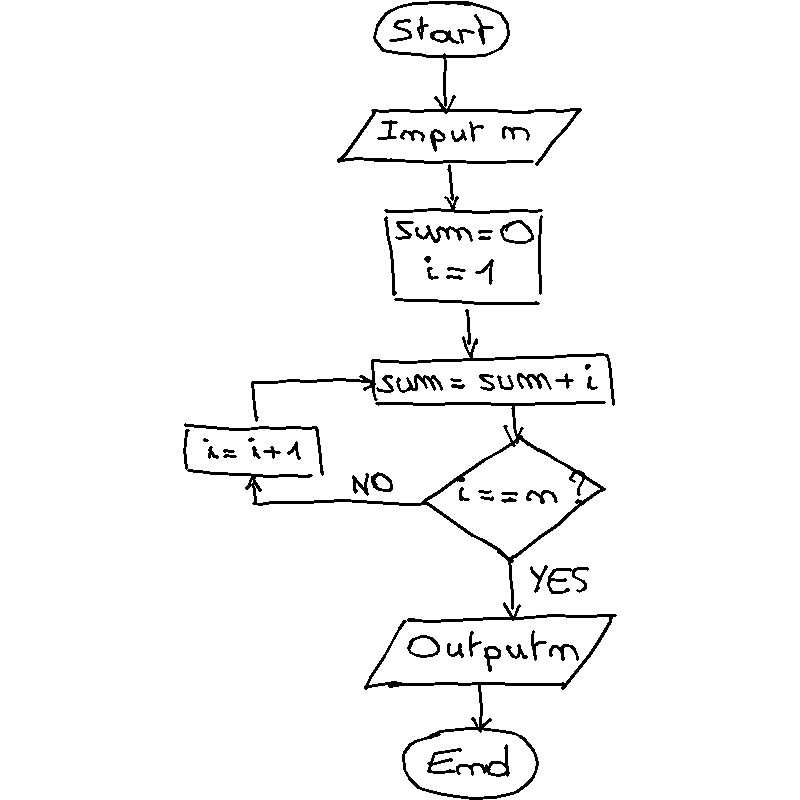 Start
Input n
sum=0
i=1
sum= sum+i
i= i+1
NO
i==n ?
YES
Output n
End